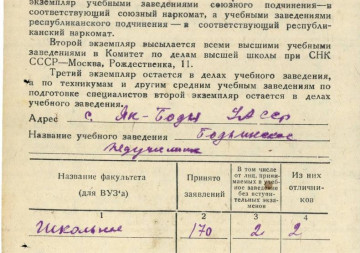 экземпляр учебными заведениями союзного подчинения—в
соответствующий союзный наркомат, а учебными заведениями
республиканского подчинения—в соответствующий республи-
канский наркомат.
Второй экземпляр высылается всеми высшими учебными
заведениями в Комитет по делам высшей школы при СНК
СССР—Москва, Рождественка, 11.
Третий экземпляр остается в делах учебного заведения,
а по техникумам и другим средним учебным заведениям по
подготовке специалистов второй экземпляр остается в делах
учебного заведения.
Адрес с. Як-Бодья УАССР
Название учебного заведения Бодьинское
педучилище
Название факультета
(для ВУЗ'а)
Принято
заявлений
В том числе
от лиц, прини-
маемых в учеб-
ное заведение
без вступи-
тельных экза-
менов
Из них
отлични-
ков
1 2 3 4
Школьное 170 2 2